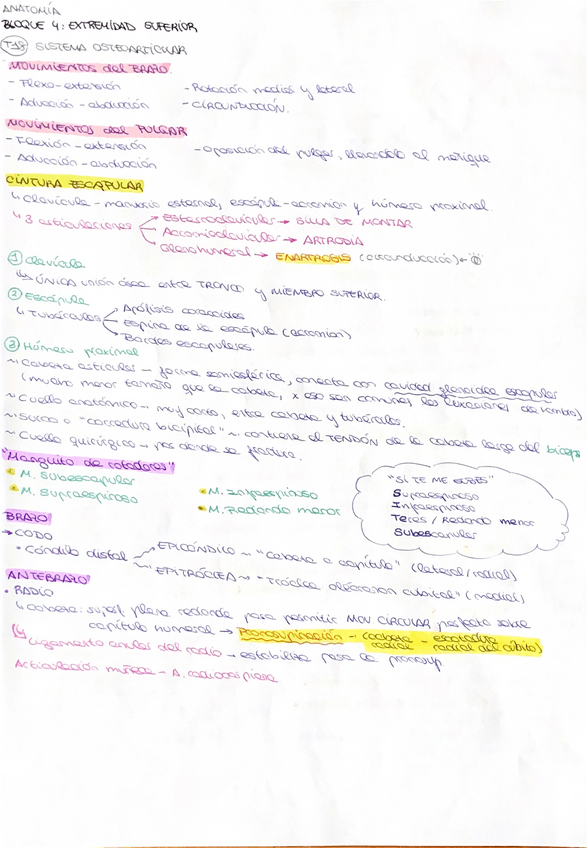 ANATOMÍA
BLOQUE 4: EXTREMIDAD SUPERIOR
T18 SISTEMA OSTEOARTICULAR
MOVIMIENTOS del BRAZO
- Flexo-extensión - Rotación medial y lateral
- Aducción - abducción - CIRCUNDUCCIÓN.
MOVIMIENTOS del PULGAR
- Flexión - extensión - Oposición del pulgar, llevándolo al meñique
- Aducción - abducción
CINTURA ESCAPULAR
↳ Clavícula - manubrio esternal, escápula - acromion y húmero proximal.
↳ 3 articulaciones Esternoclavicular → SILLA DE MONTAR
Acromioclavicular → ARTRODIA
Glenohumeral → ENARTROSIS (circunducción)
① Clavícula
↳ ÚNICA unión ósea entre TRONCO y MIEMBRO SUPERIOR.
② Escápula
↳ Tubérculos Apófisis coracoides
Espina de la escápula (acromion)
Bordes escapulares.
③ Húmero proximal
~ Cabeza articular - forma semiesférica, conecta con cavidad glenoidea escapular
(mucho menor tamaño que la cabeza, x eso son comunes las luxaciones de hombro)
~ Cuello anatómico - muy corto, entre cabeza y tubérculos.
~ Surco o "corredera bicipital" ~ contiene el TENDÓN de la cabeza larga del bíceps
~ Cuello quirúrgico - por donde se fractura.
"Manguito de rotadores"
M. Subescapular M. Infraespinoso
M. Supraespinoso M. Redondo menor
"SI TE ME SUBES"
Supraespinoso
Infraespinoso
Teres / Redondo menor
Subescapular
BRAZO
→ CODO
• Cóndilo distal EPICÓNDILO ~ "Cabeza o capítulo" (lateral/radial)
EPITRÓCLEA ~ "Tróclea olécranon cubital" (medial)
ANTEBRAZO
• RADIO
↳ Cabeza: superf. plana redonda para permitir MOV CIRCULAR perfecto sobre
capítulo humeral → Pronosupinación - (cabeza radial - escotadura radial del cúbito)
↳ Ligamento anular del radio - estabiliza para la pronosup
Articulación muñeca - A. radiocarpiana